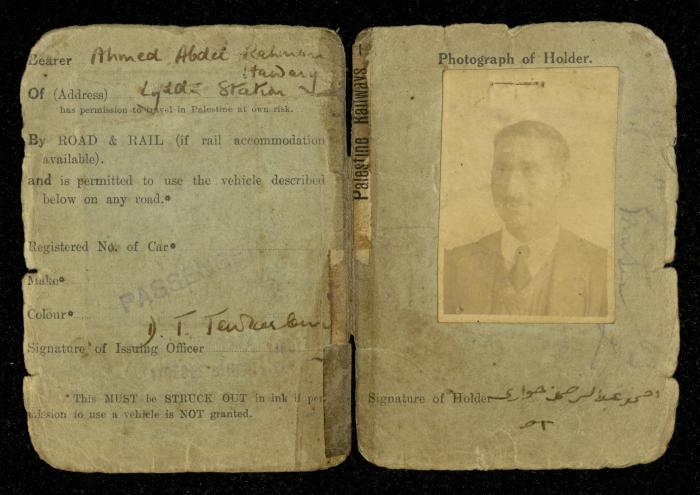 Bearer Ahmed Abdel Rahman
Hawary
Of (Address) Lydda Station
has permission to travel in Palestine at own risk.
By ROAD & RAIL (if rail accommodation
available).
and is permitted to use the vehicle described
below on any road.*
Registered No. of Car*
PASSEN
Make*
Colour*
D. T. Tewkesbury
Signature of Issuing Officer
*This MUST be STRUCK OUT in ink if per
mission to use a vehicle is NOT granted.
Palestine Railways
Photograph of Holder.
Signature of Holder احمد عبد الرحمن هواري